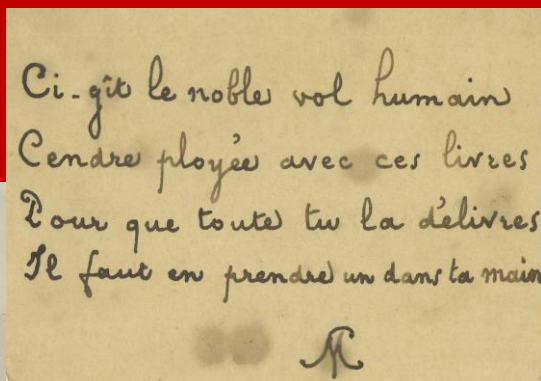 Ci-gît le noble vol humain
Cendre ployée avec ces livres
Pour que toute tu la délivres
Il faut en prendre un dans ta main
M